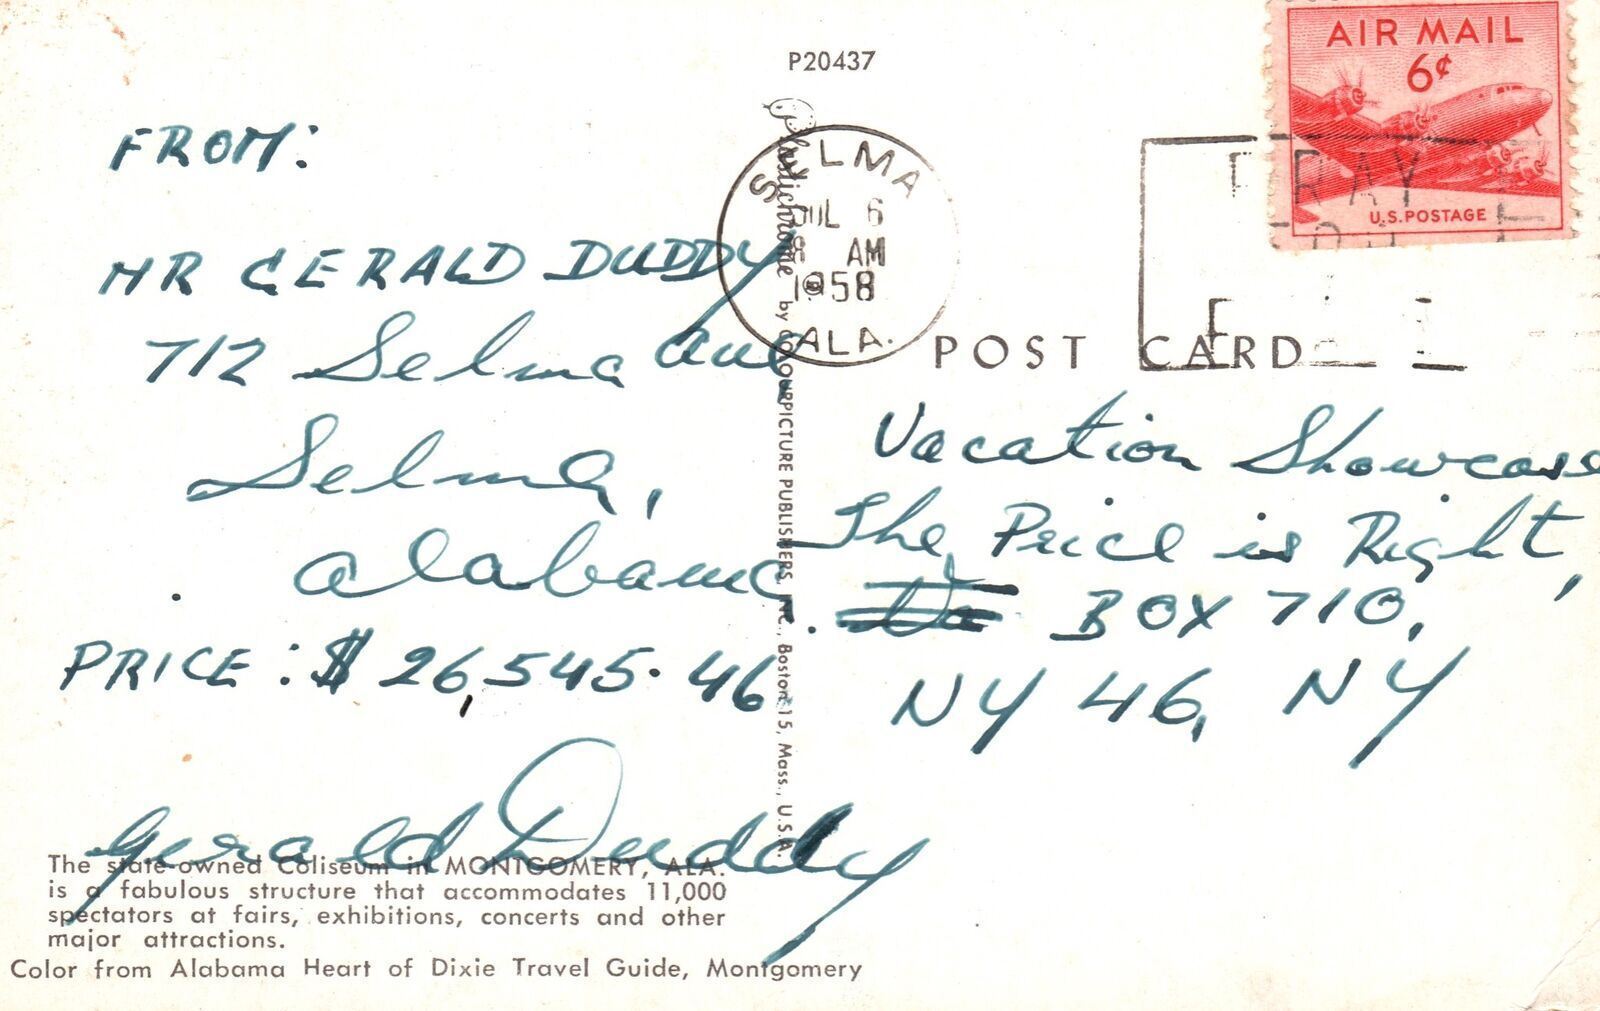 P20437
AIR MAIL
6¢
U.S. POSTAGE
SELMA
JUL 6
8 AM
1958
ALA.
PRAY
FOR
POST CARD
Plastichrome by COLOURPICTURE PUBLISHERS, INC., Boston 15, Mass., U.S.A.
FROM:
MR GERALD DUDDY
712 Selma Ave
Selma,
Alabama.
PRICE: $26,545.46
Gerald Duddy
Vacation Showcase
The Price is Right,
BOX 710,
NY 46, NY
The state-owned Coliseum in MONTGOMERY, ALA.
is a fabulous structure that accommodates 11,000
spectators at fairs, exhibitions, concerts and other
major attractions.
Color from Alabama Heart of Dixie Travel Guide, Montgomery